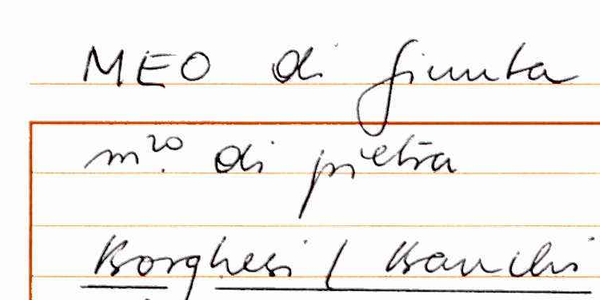 MEO di Giunta
m.ro di pietra
Borghesi / Bianchi